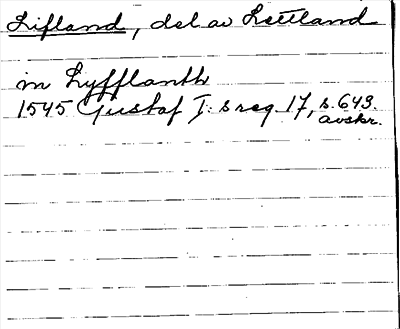 Lifland, del av Lettland
in Lyfflanth
1545 Gustaf I:s reg. 17, s. 643.
avskr.